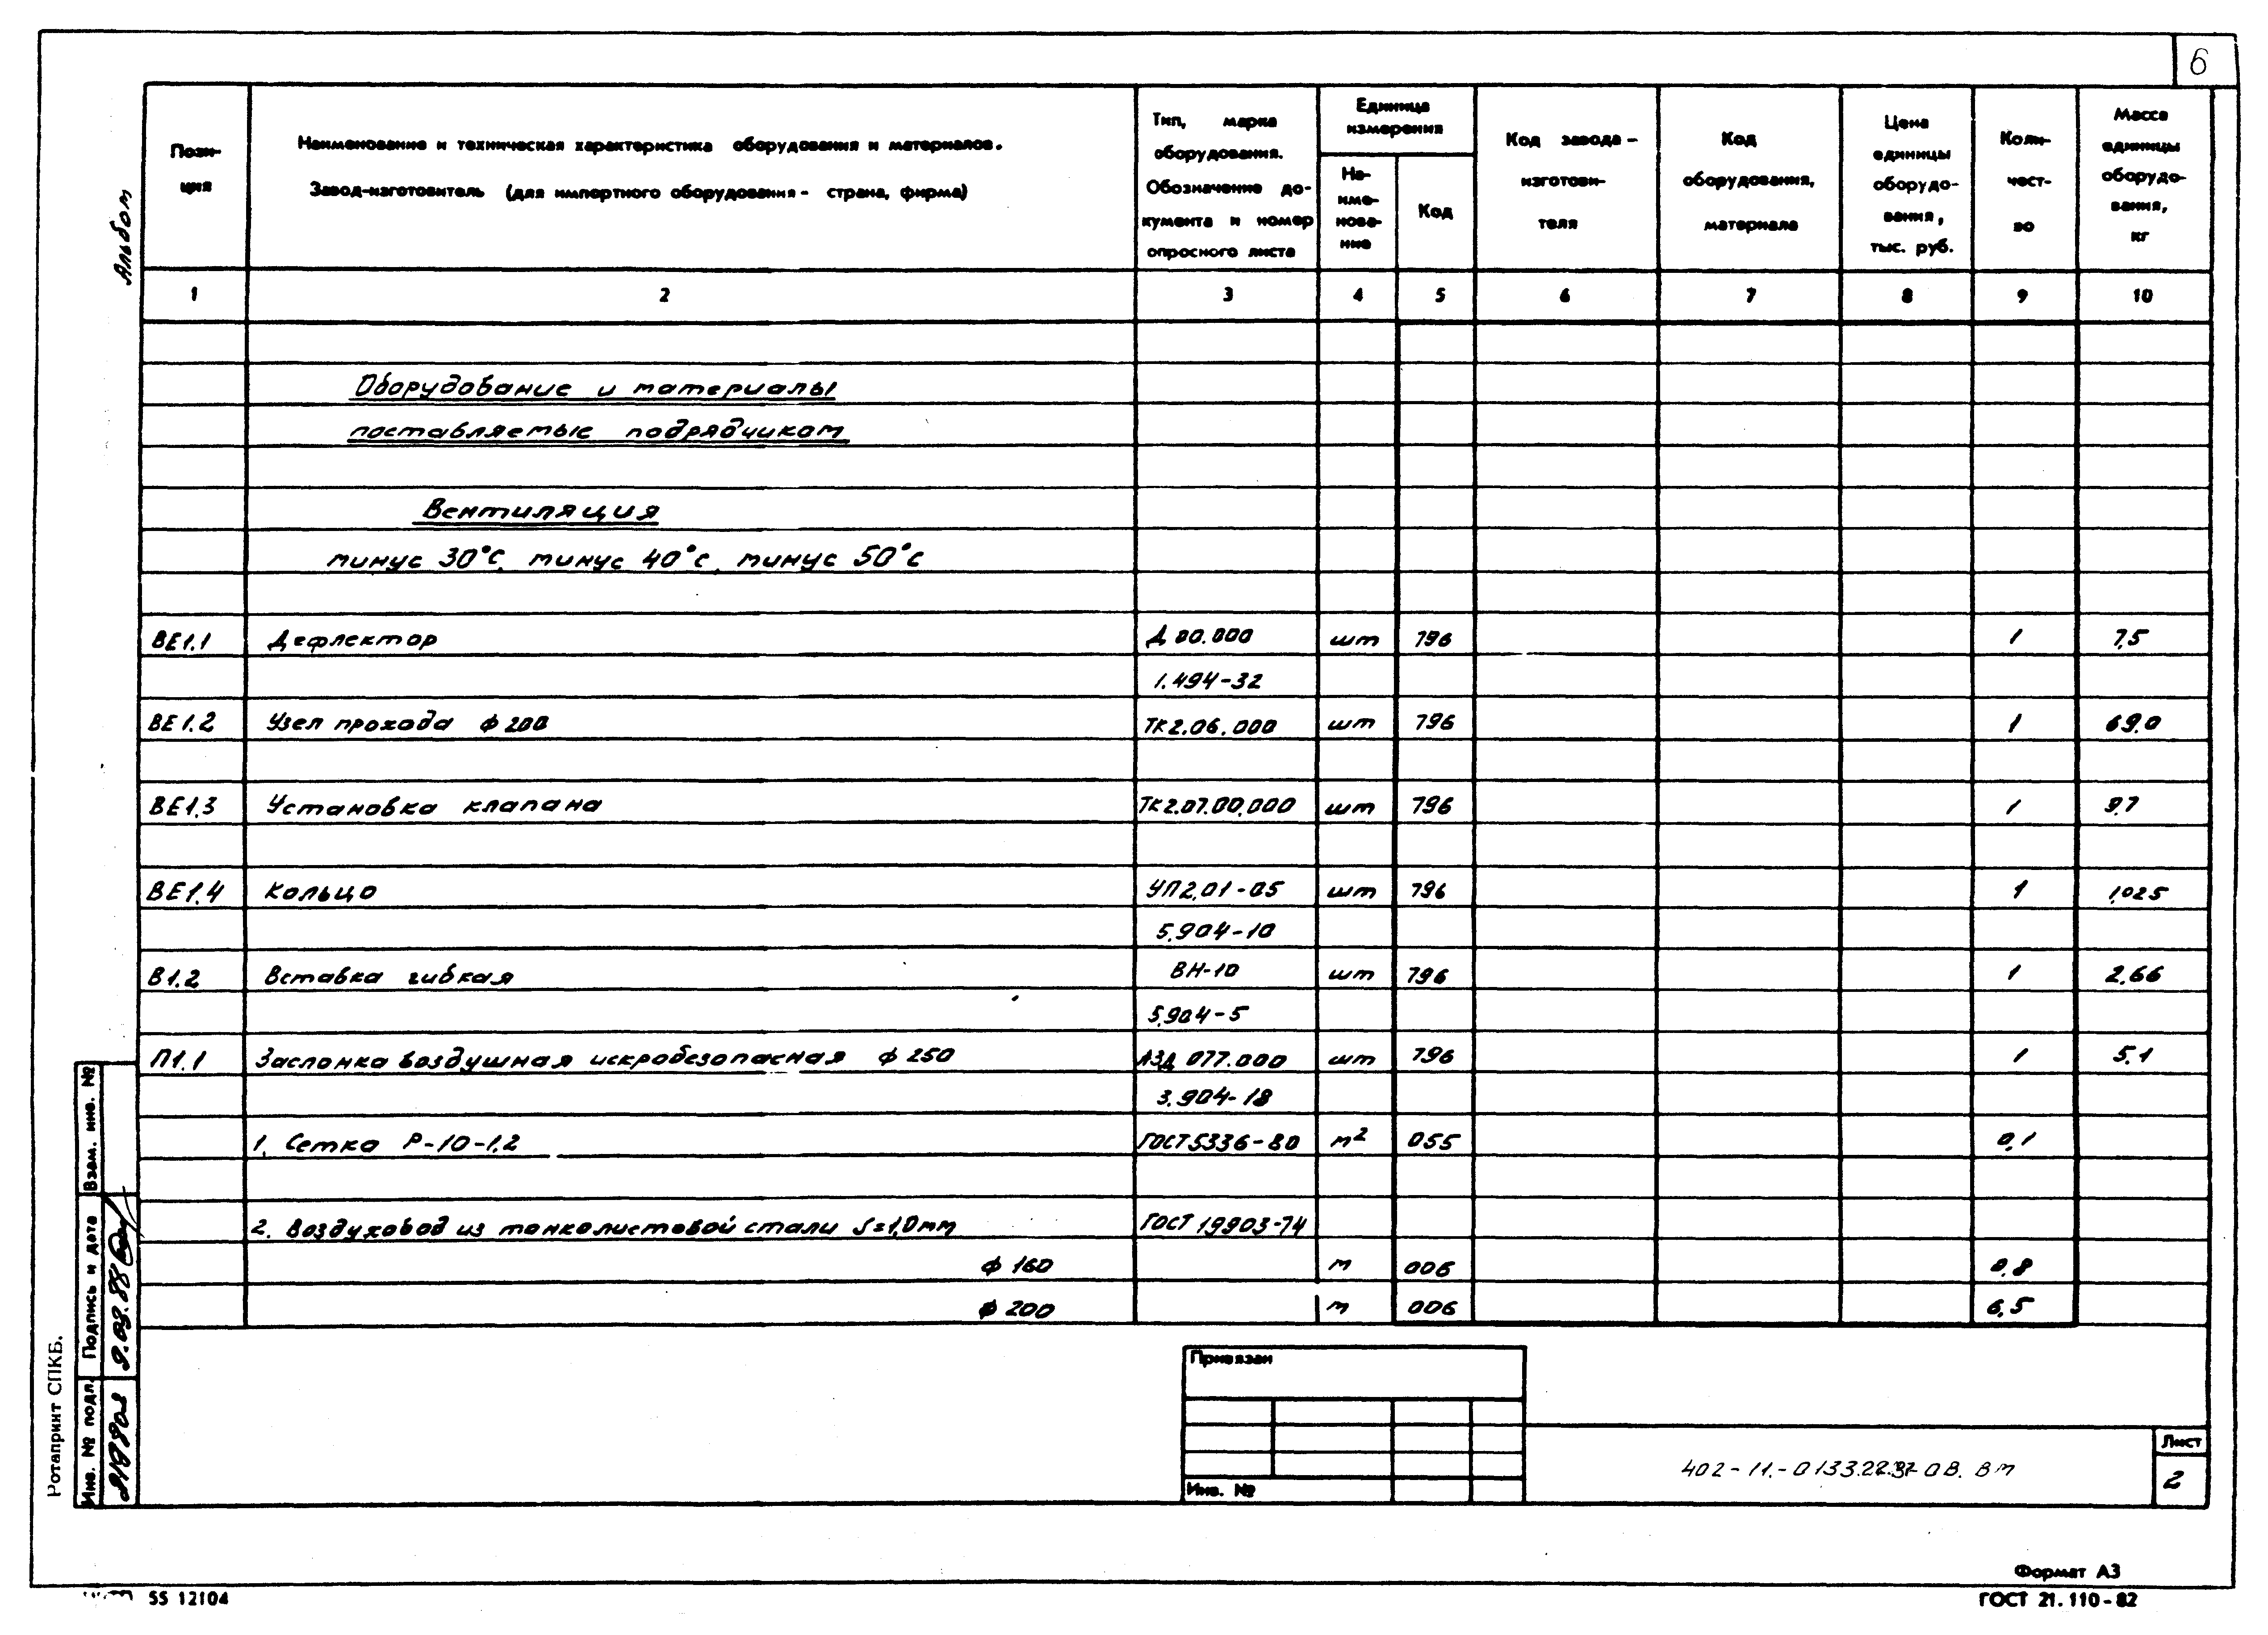 6
Альбом
Пози-
ция
Наименование и техническая характеристика оборудования и материалов.
Завод-изготовитель (для импортного оборудования - страна, фирма)
Тип, марка
оборудования.
Обозначение до-
кумента и номер
опросного листа
Единица
измерения
На-
име-
нова-
ние
Код
Код завода -
изготови-
теля
Код
оборудования,
материала
Цена
единицы
оборудо-
вания,
тыс. руб.
Коли-
чест-
во
Масса
единицы
оборудо-
вания,
кг
1 2 3 4 5 6 7 8 9 10
Оборудование и материалы
поставляемые подрядчиком
Вентиляция
минус 30°С, минус 40°С, минус 50°С
ВЕ1.1 Дефлектор Д 00.000 шт 796 1 7,5
1.494-32
ВЕ1.2 Узел прохода ф 200 ТК2.06.000 шт 796 1 69.0
ВЕ1.3 Установка клапана ТК2.07.00.000 шт 796 1 9,7
ВЕ1.4 Кольцо УП2.01-05 шт 796 1 1,025
5.904-10
В1.2 Вставка гибкая ВН-10 шт 796 1 2.66
5.904-5
П1.1 Заслонка воздушная искробезопасная ф 250 АЗД 077.000 шт 796 1 5.1
3.904-18
1. Сетка Р-10-1.2 ГОСТ5336-80 м² 055 0,1
2. Воздуховод из тонколистовой стали S=1,0мм ГОСТ 19903-74
ф 160 м 006 0,8
ф 200 м 006 6,5
Взам. инв. №
Подпись и дата
9.03.88
Инв. № подл.
Ротапринт СПКБ.
Привязан
Инв. №
402-11.-0133. ОВ. ВМ
Лист
2
Формат А3
ГОСТ 21.110-82
55 12104